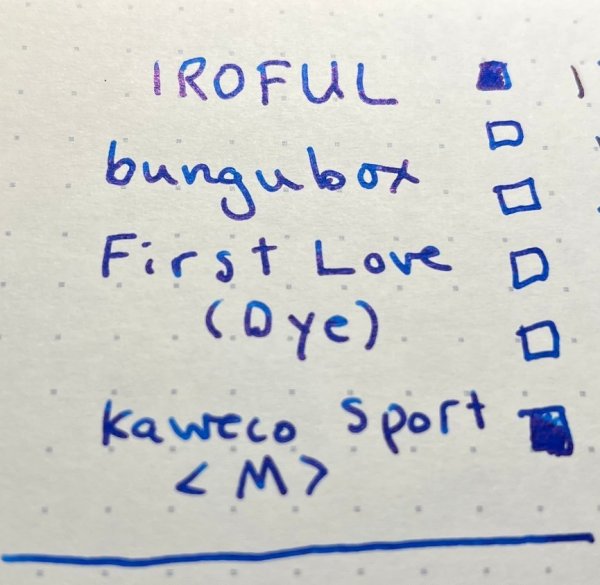 IROFUL
bungubox
First Love
(Dye)
Kaweco Sport
<M>